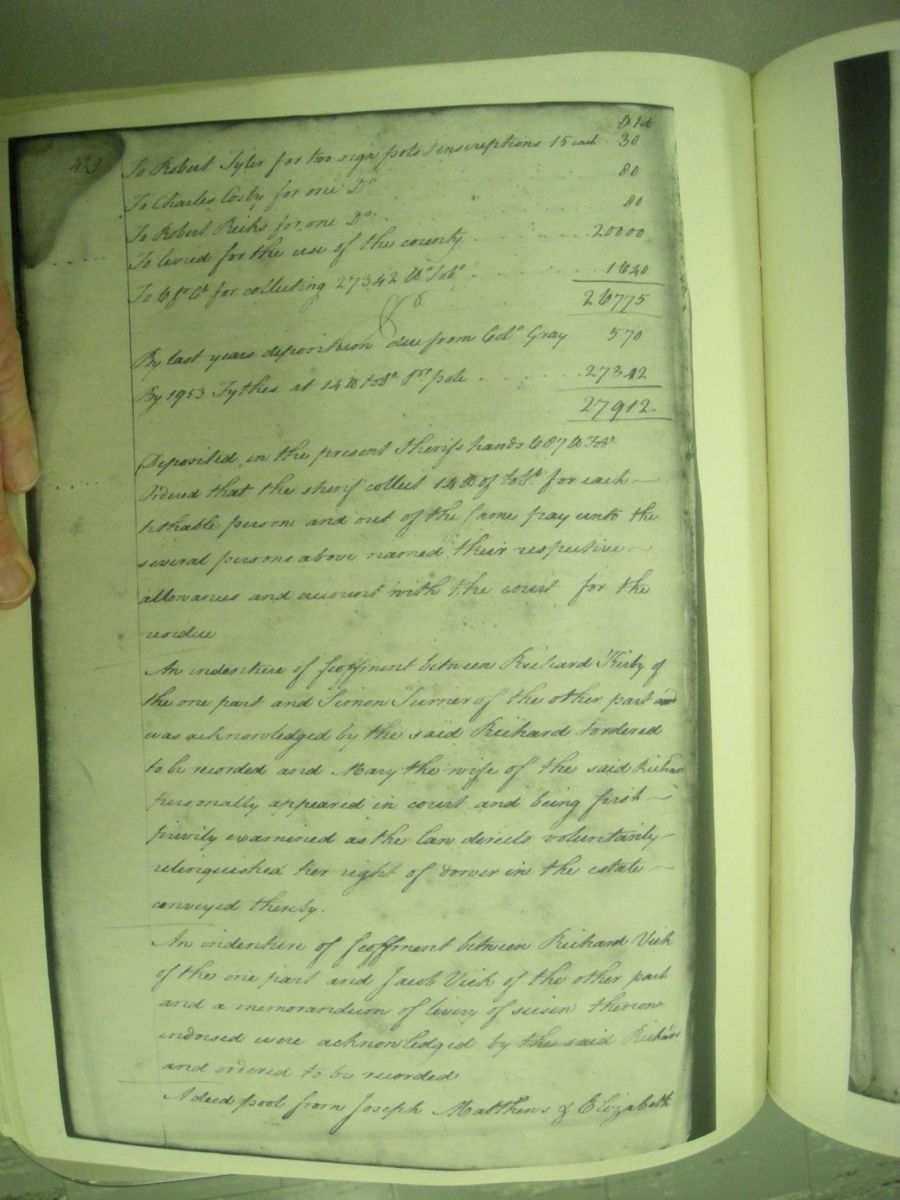 423
lbs tob
To Robert Tyler for two sign posts & inscriptions 15 each 30
To Charles Cosby for one Do 80
To Robert Ricks for one Do 80
To levied for the use of the county 20000
To 6 Pr Ct for collecting 27342 lbs Tobo 1640
26775
By last years depositum due from Colo Gray 570
By 1953 Tythes at 14 lb tobo Pr pole 27342
27912
Deposited in the present Sherifs hands 687 lb Tobo
Ordered that the sherif collect 14 lb of tobo for each
tithable person and out of the same pay unto the
several persons above named their respective
allowances and account with the court for the
residue
An indenture of feoffment between Richard Kirby of
the one part and Simon Turner of the other part and
was acknowledged by the said Richard & ordered
to be recorded and Mary the wife of the said Richard
personally appeared in court and being first
privily examined as the law directs voluntarily
relinquished her right of dower in the estate
conveyed thereby.
An indenture of feoffment between Richard Vick
of the one part and Jacob Vick of the other part
and a memorandum of livery of seisin thereon
indorsed were acknowledged by the said Richard
and ordered to be recorded
A deed pool from Joseph Matthews & Elizabeth